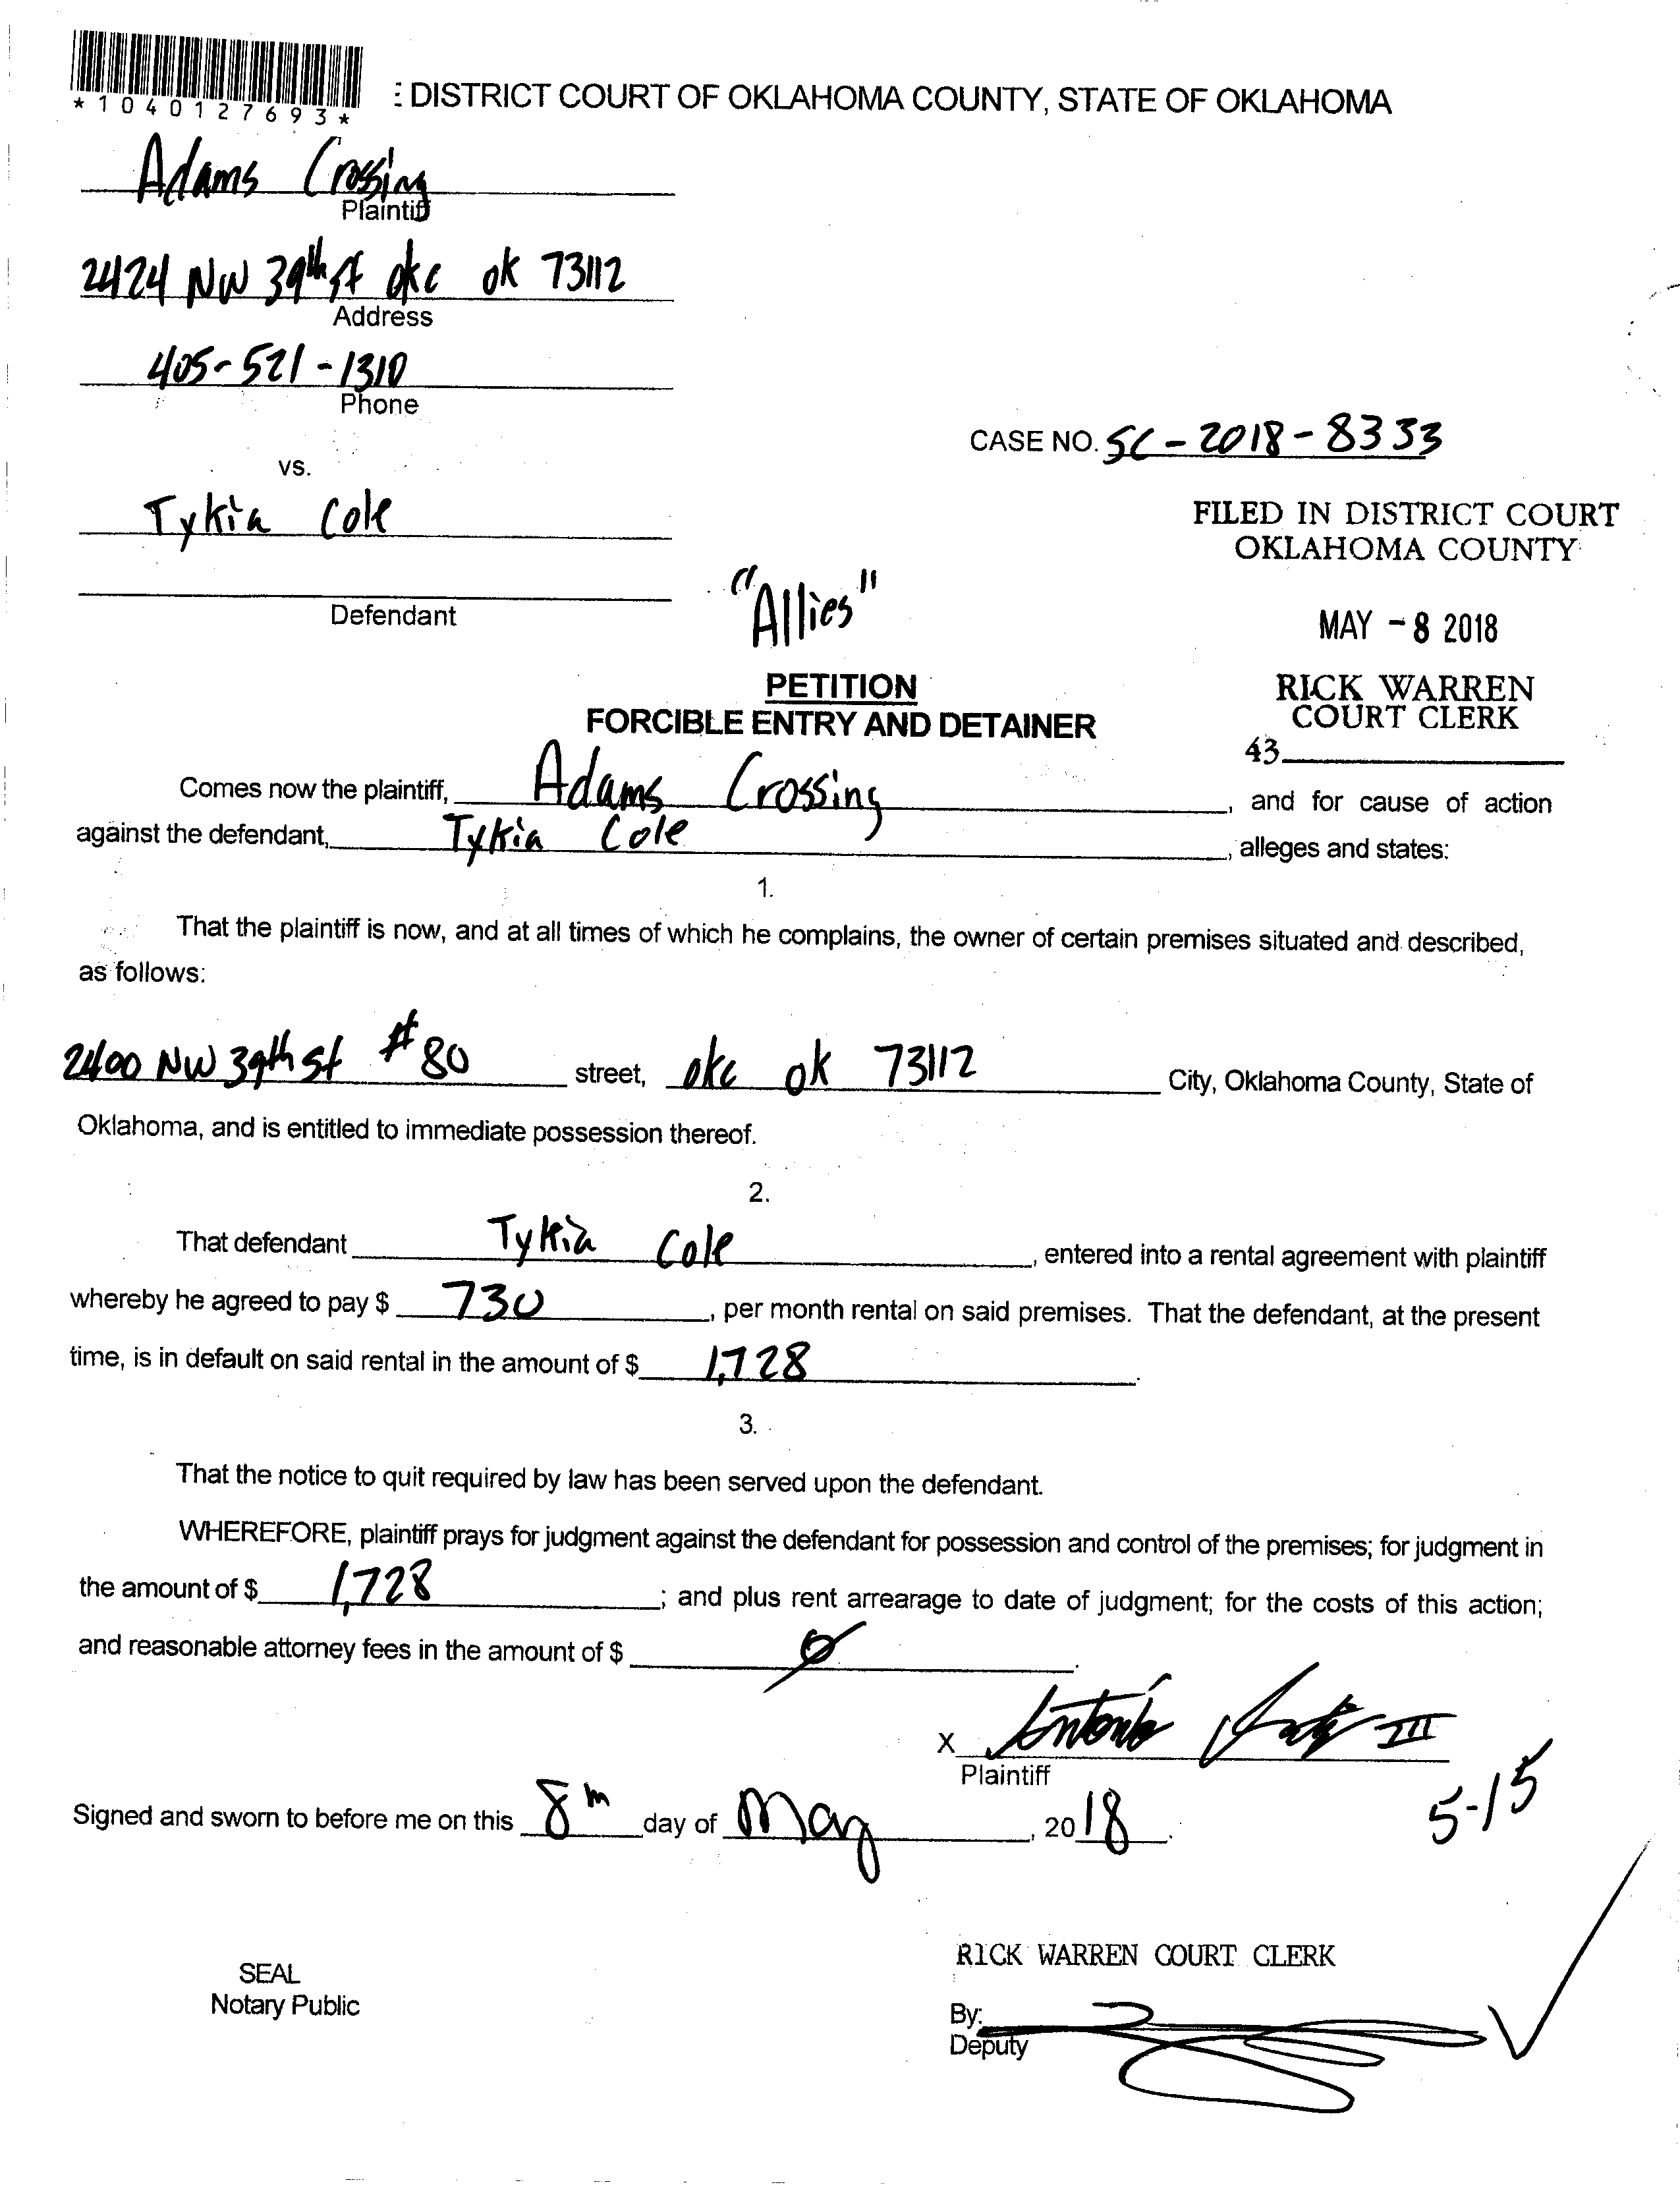 *1040127693*
: DISTRICT COURT OF OKLAHOMA COUNTY, STATE OF OKLAHOMA
Adams Crossing
Plaintiff
2424 NW 39th st okc ok 73112
Address
405-521-1310
Phone
CASE NO. SC-2018-8333
vs.
Tykia Cole
FILED IN DISTRICT COURT
OKLAHOMA COUNTY
Defendant
"Allies"
MAY -8 2018
PETITION
FORCIBLE ENTRY AND DETAINER
RICK WARREN
COURT CLERK
43
Comes now the plaintiff, Adams Crossing, and for cause of action
against the defendant, Tykia Cole, alleges and states:
1.
That the plaintiff is now, and at all times of which he complains, the owner of certain premises situated and described,
as follows:
2400 NW 39th st #80 street, okc ok 73112 City, Oklahoma County, State of
Oklahoma, and is entitled to immediate possession thereof.
2.
That defendant Tykia Cole, entered into a rental agreement with plaintiff
whereby he agreed to pay $ 730, per month rental on said premises. That the defendant, at the present
time, is in default on said rental in the amount of $ 1,728.
3.
That the notice to quit required by law has been served upon the defendant.
WHEREFORE, plaintiff prays for judgment against the defendant for possession and control of the premises; for judgment in
the amount of $ 1,728; and plus rent arrearage to date of judgment; for the costs of this action;
and reasonable attorney fees in the amount of $ Ø.
X Antonio III
Plaintiff
5-15
Signed and sworn to before me on this 8th day of May, 2018.
RICK WARREN COURT CLERK
SEAL
Notary Public
By:
Deputy